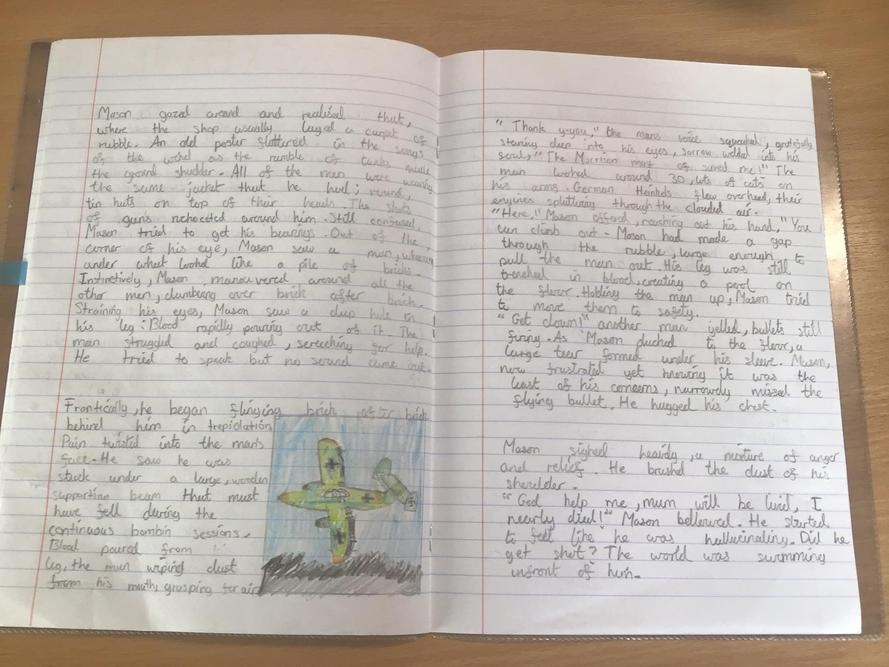 Mason gazed around and realised that,
where the shop usually layed a carpet of
rubble. An old poster fluttered in the songs
of the wind as the rumble of tanks made
the ground shudder. All of the men were wearing
the same jacket that he had; round,
tin hats on top of their heads. The shots
of guns richocheted around him. Still confused,
Mason tried to get his bearings. Out of the
corner of his eye, Mason saw a man,
under what looked like a pile of bricks.
Instinctively, Mason manouvered around all the
other men, clambering over brick after brick.
Straining his eyes, Mason saw a deep hole in
his leg. Blood rapidly pouring out of it. The
man struggled and coughed, screeching for help.
He tried to speak but no sound came out.
Frantically, he began flinging brick after brick
behind him in trepidation.
Pain twisted into the man's
face. He saw he was
stuck under a large, wooden
supporting beam that must
have fell during the
continuous bombin sessions.
Blood poured from
leg, the man wiping dust
from his mouth, grasping for air.
"Thank y-you," the mans voice squeaked, gratefully
staring deep into his eyes, sorrow welded into his
soul, "The Morrison must of saved me!" The
man looked around 30, lots of cuts on
his arms. German Heinkels flew overhead, their
engines spluttering through the clouded air.
"Here," Mason offerd, reaching out his hand, "You
can climb out - Mason had made a gap
through the rubble, large enough to
pull the man out. His leg was still
trenched in blood, creating a pool on
the floor. Holding the man up, Mason tried
to move them to safety.
"Get down!" another man yelled, bullets still
firing. As Mason ducked to the floor, a
large tear formed under his sleeve. Mason,
now frustrated yet knowing it was the
least of his concerns, narrowly missed the
flying bullet. He hugged his chest.
Mason sighed heavily, a mixture of anger
and relief. He brushed the dust of his
shoulder.
"God help me, mum will be livid, I
nearly died!" Mason bellowed. He started
to feel like he was hallucinating. Did he
get shot? The world was swimming
infront of him.